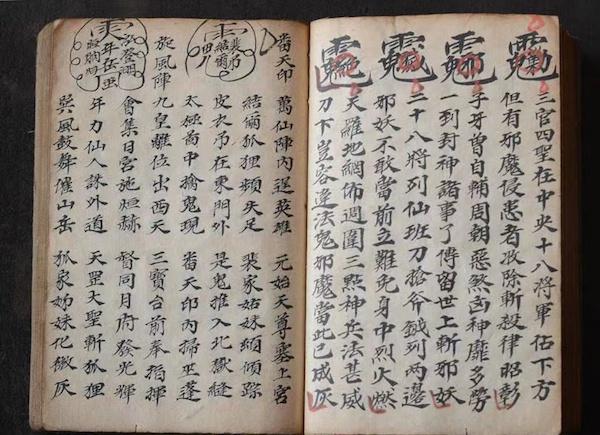 三官四聖在中央十八將軍伍下方
但有邪魔侵患者收除斬殺律昭彰
子牙曾自補周朝惡煞凶神靡多勞
一到封神諸事了傳留世上斬邪妖
二十八將列仙班刀搶斧鉞列兩邊
邪妖不敢當前立難免身中烈火燃
天羅地網佈週圍三點神兵法甚威
刀下豈容違法鬼邪魔當此已成灰
番天印
萬仙陣內逞英雄 元始天尊靈上宮
結爾狐狸頻失足 裴家姑妹傾傾踪
皮衣吊在東門外 是鬼推入北獄縫
太極啚中擒鬼現 番天印內掃巫蓬
旋風陣
九皇離位出西天 三寶台前奉指揮
會集日宮施烜赫 督同月府發光輝
年力仙人誅外道 天罡大聖斬狐狸
巽風鼓舞催山岳 孤家姊妹化微灰